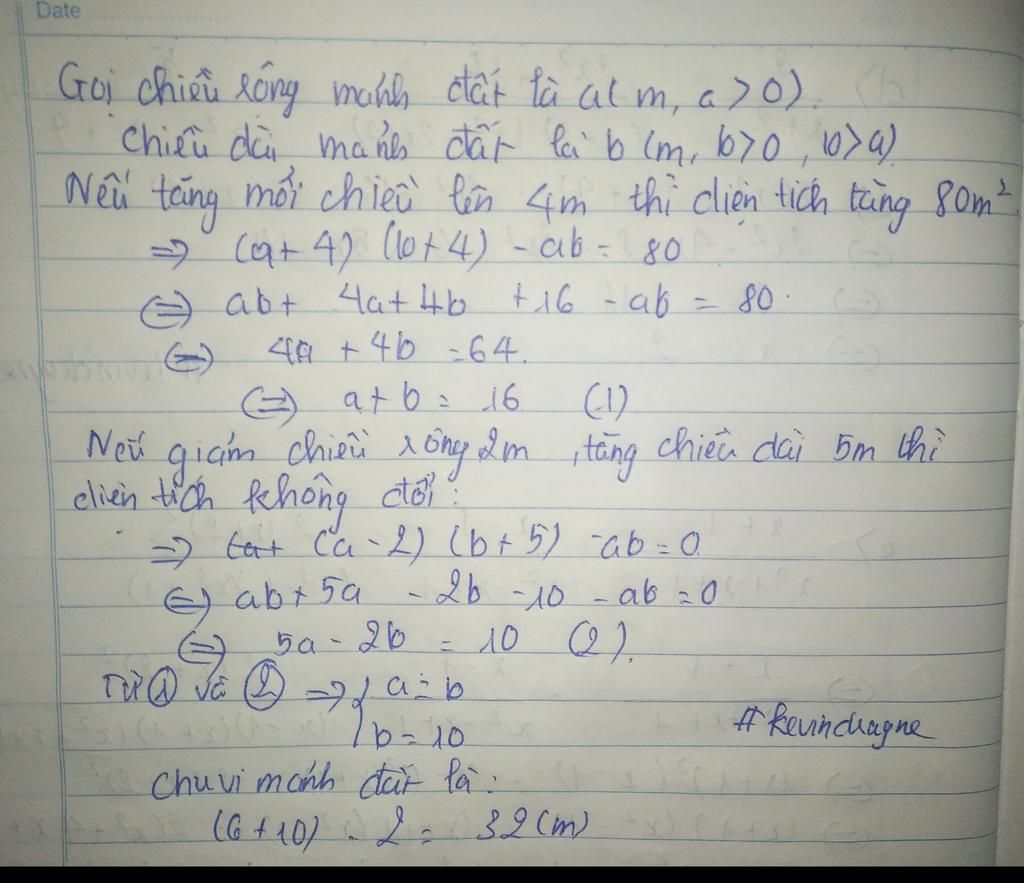 Date
Gọi chiều rộng mảnh đất là a(m, a>0).
Chiều dài mảnh đất là b (m, b>0, b>a)
Nếu tăng mỗi chiều lên 4m thì diện tích tăng 80m².
=> (a+4) (b+4) - ab = 80
<=> ab + 4a+4b +16 - ab = 80.
<=> 4a + 4b = 64.
<=> a+b = 16 (1)
Nếu giảm chiều rộng 2m, tăng chiều dài 5m thì
diện tích không đổi:
=> (a+ (a-2) (b+5) -ab=0
<=> ab+5a -2b -10 -ab=0
<=> 5a-2b = 10 (2).
Từ ① và ② => { a = 6
b = 10
#kevinchagne
Chu vi mảnh đất là:
(6+10) . 2 = 32 (m)